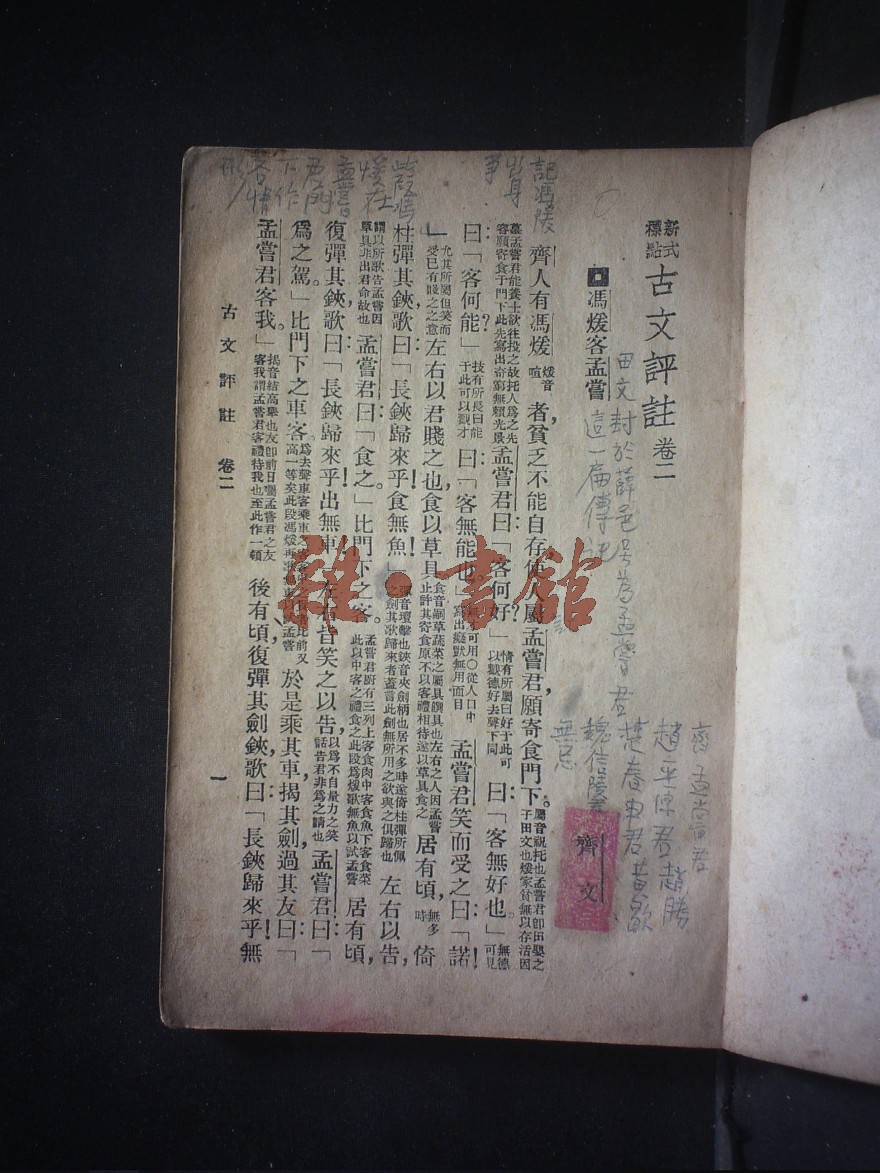 新式標點 古文評註 卷二
馮煖客孟嘗
齊文
齊人有馮煖煖音喧者，貧乏不能自存，使人屬孟嘗君，願寄食門下。屬音祝托也孟嘗君卽田嬰之子田文也煖家貧無以存活因
慕孟嘗君能養士欲往投之故托人爲之先容願寄食于門下此先寫出奇窮無賴光景孟嘗君曰：「客何好？」情有所屬曰好于此可以觀德好去聲下同曰：「客無好也。」無德可見
曰：「客何能？」技有所長曰能于此可以觀才曰：「客無能也。」寫出癡默無用面目孟嘗君笑而受之曰：「諾！
」尤其所屬但笑而受已有賤之之意左右以君賤之也食以草具食音嗣草蔬菜之屬具饌具也左右之人因孟嘗止許其寄食原不以客禮相待遂以草具食之居有頃，無多時倚
柱彈其鋏，歌曰：「長鋏歸來乎！食無魚！」彈音壇擊也鋏音夾劍柄也居不多時遂倚柱彈所佩之劍其歌歸來者蓋言此劍無所用之欲與之俱歸也左右以告，
謂以所歌告孟嘗因草具非出君命故也孟嘗君曰：「食之。」比門下之客。孟嘗君厨有三列上客食肉中客食魚下客食菜此以中客之禮食之此段爲煖歌無魚以試孟嘗居有頃，
復彈其鋏，歌曰：「長鋏歸來乎！出無車！」左右皆笑之以告，以爲不自量力之笑話告君非爲之請也孟嘗君曰：「
爲之駕。」比門下之車客。於是乘其車，揭其劍，過其友曰：「
孟嘗君客我。」揭音結高舉也友卽前日屬孟嘗君之友客我謂孟嘗君客禮待我也至此作一頓後有頃，復彈其劍鋏，歌曰：「長鋏歸來乎！無
古文評註 卷二
一
田文封於薛邑号為孟嘗君
這一篇傳記
齊孟嘗君
趙平原君趙勝
楚春申君黃歇
魏信陵君
無忌
雜·書館